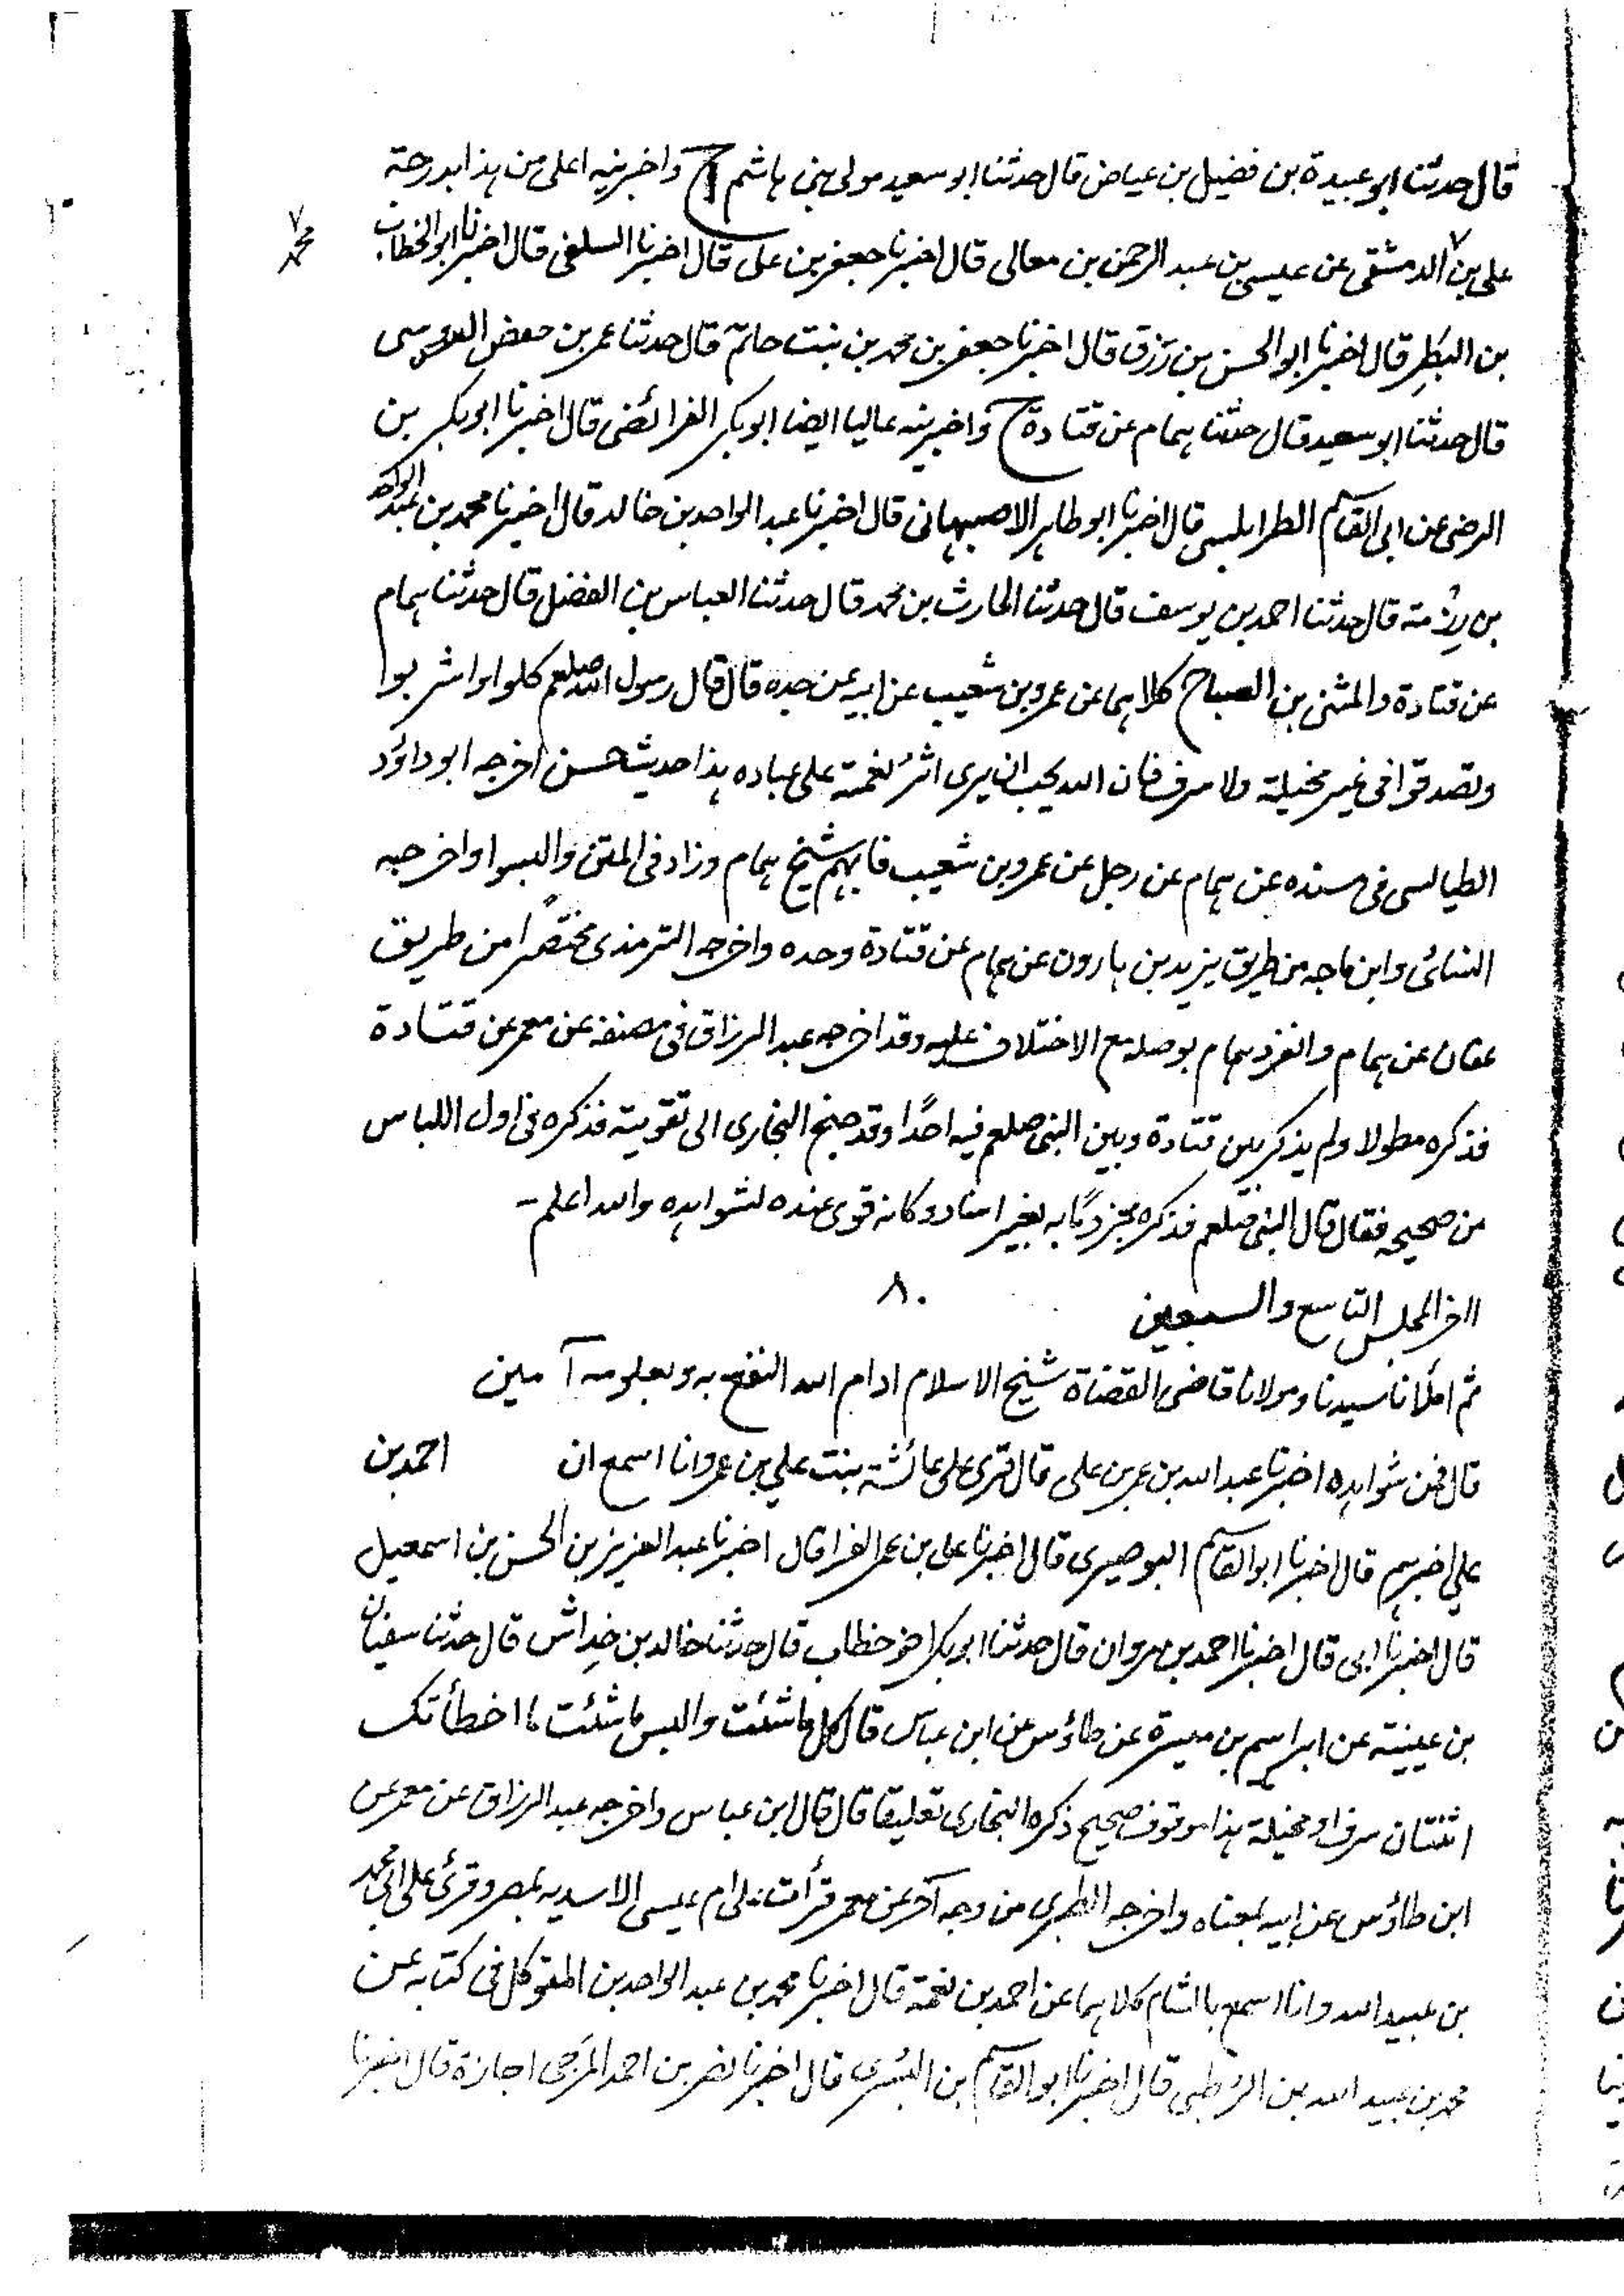 قال حدثنا ابو عبيدة بن فضيل بن عياض قال حدثنا ابو سعيد مولى بني هاشم ح واخبرنيه اعلى من هذا بدرجة
على بن الدمشقى عن عيسى بن عبد الرحمن بن معالى قال اخبرنا جعفر بن على قال اخبرنا السلفى قال اخبرنا ابو الخطاب
محمد
بن البطر قال اخبرنا ابو الحسن بن رزق قال اخبرنا جعفر بن محمد بن بنت حاتم قال حدثنا عمر بن حفص السدوسى
قال حدثنا ابو سعيد قال حدثنا همام عن قتادة ح واخبرنيه عاليا ايضا ابو بكر الفرائضى قال اخبرنا ابو بكر بن
الرضى عن ابى القاسم الطرابلسى قال اخبرنا ابو طاهر الاصبهانى قال اخبرنا عبد الواحد بن خالد قال اخبرنا محمد بن عبد الواحد
بن قال حدثنا احمد بن يوسف قال حدثنا الحارث بن محمد قال حدثنا العباس بن الفضل قال حدثنا همام
عن قتادة والمثنى بن الصباح كلاهما عن عمرو بن شعيب عن ابيه عن جده قال قال رسول الله صلعم كلوا واشربوا
وتصدقوا فى غير مخيلة ولا سرف فان الله يحب ان يرى اثر نعمته على عباده هذا حديث حسن اخرجه ابو داؤد
الطيالسى فى مسنده عن همام عن رجل عن عمرو بن شعيب فابهم شيخ همام وزاد فى المتن والبسوا واخرجه
النسائى وابن ماجه من طريق يزيد بن هارون عن همام عن قتادة وحده واخرجه الترمذى مختصرًا من طريق
عفان عن همام وانفرد همام بوصله مع الاختلاف عليه وقد اخرجه عبد الرزاق فى مصنفه عن معمر عن قتادة
فذكره مطولا ولم يذكر بين قتادة وبين النبى صلعم فيه احدًا وقد جنح البخارى الى تقويته فذكره فى اول اللباس
من صحيحه فقال قال النبى صلعم فذكره مجزومًا به بغير اسناد وكانه قوى عنده لشواهده والله اعلم -
اخر المجلس التاسع والسبعين ٨٠
ثم املانا سيدنا ومولانا قاضى القضاة شيخ الاسلام ادام الله النفع به وبعلومه آمين
قال فمن شواهده اخبرنا عبد الله بن عمر بن على قال قرى على عائشة بنت على بن عمر وانا اسمع ان احمد بن
على اخبرهم قال اخبرنا ابو القاسم البوصيرى قال اخبرنا على بن عمر الفرا قال اخبرنا عبد العزيز بن الحسن بن اسمعيل
قال اخبرنا ابى قال اخبرنا احمد بن مروان قال حدثنا ابو بكر اخو خطاب قال حدثنا خالد بن خِداش قال حدثنا سفيان
بن عيينة عن ابراهيم بن ميسرة عن طاؤس عن ابن عباس قال كل ما شئت والبس ما شئت ما اخطأتك
اثنتان سرف او مخيلة هذا موقوف صحيح ذكره البخارى تعليقا قال قال ابن عباس واخرجه عبد الرزاق عن معمر عن
ابن طاؤس عن ابيه بمعناه واخرجه الطبرى من وجه آخر عن معمر قرأت على ام عيسى الاسديه بمصر وقرئ على ابى محمد
بن عبيد الله وانا اسمع بالشام كلاهما عن احمد بن نعمة قال اخبرنا محمد بن عبد الواحد بن المتوكل فى كتابه عن
محمد بن عبيد الله بن الرطبى قال اخبرنا ابو القاسم بن البُسرى قال اخبرنا نصر بن احمد المرجى اجازة قال اخبرنا